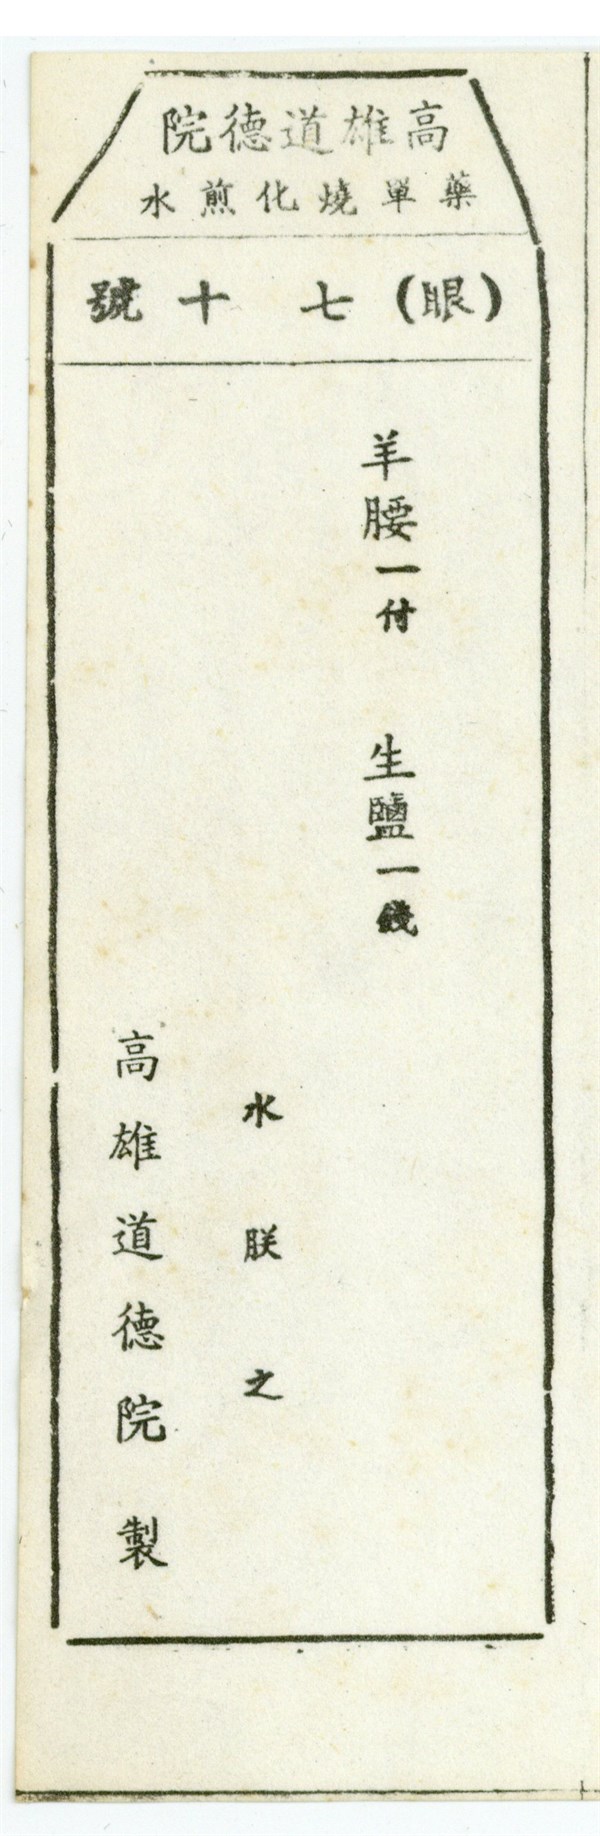 高雄道德院
藥單燒化煎水
(眼)七十號
羊腰一付 生鹽一錢
水朕之
高雄道德院製